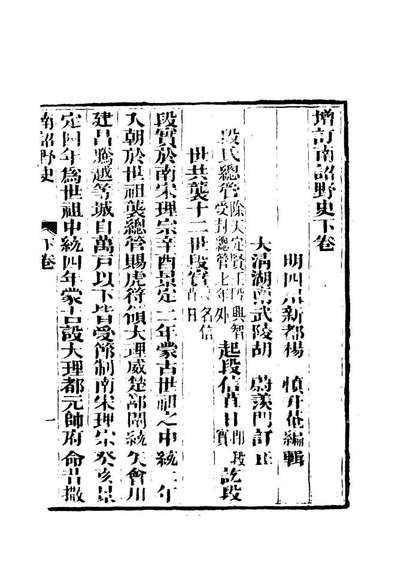 增訂南詔野史下卷
明四川新都楊 慎升菴編輯
大清湖南武陵胡 蔚羨門訂正
段氏總管除大定賢王段興智受封總管七年外起段信苴日即段實訖段
世共襲十二世段實名信苴日
段實於南宋理宗辛酉景定二年蒙古世祖之中統二年
入朝於世祖襲總管賜虎符領大理威楚鄯闡統矢會川
建昌騰越等城自萬戶以下皆受節制南宋理宗癸亥景
定四年爲世祖中統四年蒙古設大理都元帥府命昔撒
南詔野史 下卷 一